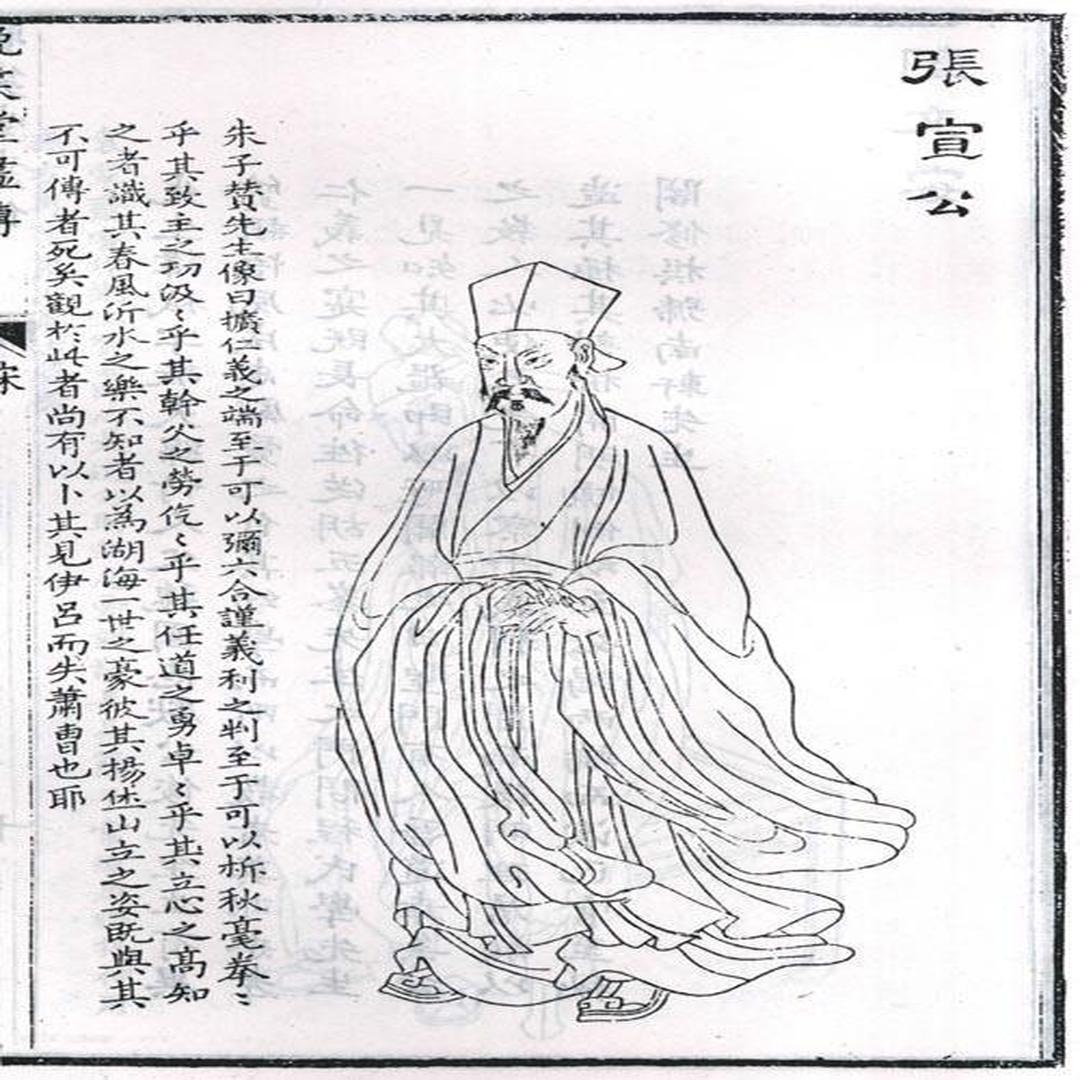 張宣公
朱子贊先生像曰擴仁義之端至于可以彌六合謹義利之判至于可以析秋毫拳〻
乎其致主之功汲〻乎其幹父之勞仡〻乎其任道之勇卓〻乎其立心之高知
之者識其春風沂水之樂不知者以為湖海一世之豪彼其揚休山立之姿既與其
不可傳者死矣觀於此者尚有以卜其見伊呂而失蕭曹也耶
晚笑堂畫傳
宋